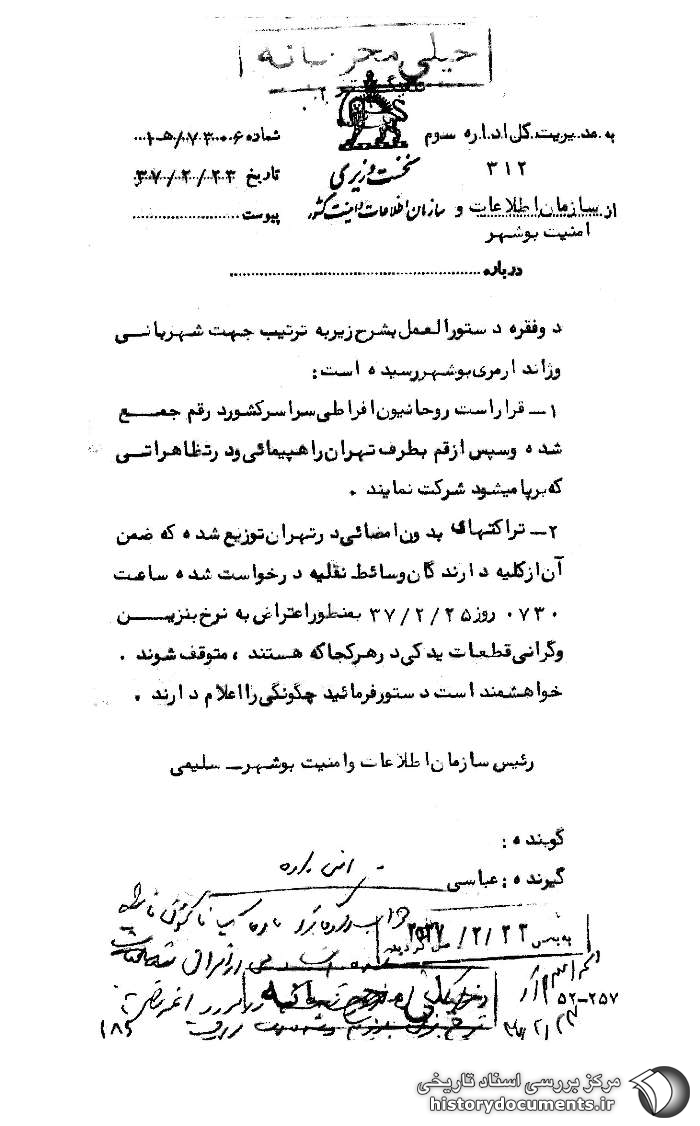 خیلی محرمانه
به مدیریت کل اداره سوم
۳۱۲
از سازمان اطلاعات و
امنیت بوشهر
نخست وزیری
سازمان اطلاعات و امنیت کشور
شماره
تاریخ ۳۷/۲/۲۳
پیوست
درباره
دوفقره دستورالعمل بشرح زیر به ترتیب جهت شهربانی
وژاندارمری بوشهر رسیده است:
۱ـ قرار است روحانیون افراطی سراسر کشور در قم جمع
شده وسپس از قم بطرف تهران راهپیمائی ودر تظاهراتی
که برپا میشود شرکت نمایند .
۲ـ تراکتهای بدون امضائی در تهران توزیع شده که ضمن
آن از کلیه دارندگان وسائط نقلیه درخواست شده ساعت
۰۷۳۰ روز ۳۷/۲/۲۵ بمنظور اعتراض به نرخ بنزین
وگرانی قطعات یدکی در هر کجا که هستند ، متوقف شوند .
خواهشمند است دستور فرمائید چگونگی را اعلام دارند .
رئیس سازمان اطلاعات وامنیت بوشهرـ سلیمی
گوینده :
گیرنده : عباسی
خیلی محرمانه
۵۲-۲۵۷
مرکز بررسی اسناد تاریخی
historydocuments.ir